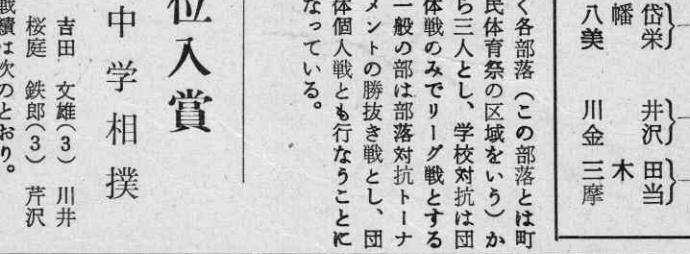 岱栄 井沢 田当
幡 木
八美 川金 三摩
く各部落（この部落とは町
民体育祭の区域をいう）か
ら三人とし、学校対抗は団
体戦のみでリーグ戦とする
一般の部は部落対抗トーナ
メントの勝抜き戦とし、団
体個人戦とも行なうことに
なっている。
位入賞
中学相撲
吉田 文雄（３） 川井
桜庭 鉄郎（３） 芹沢
戦績は次のとおり。